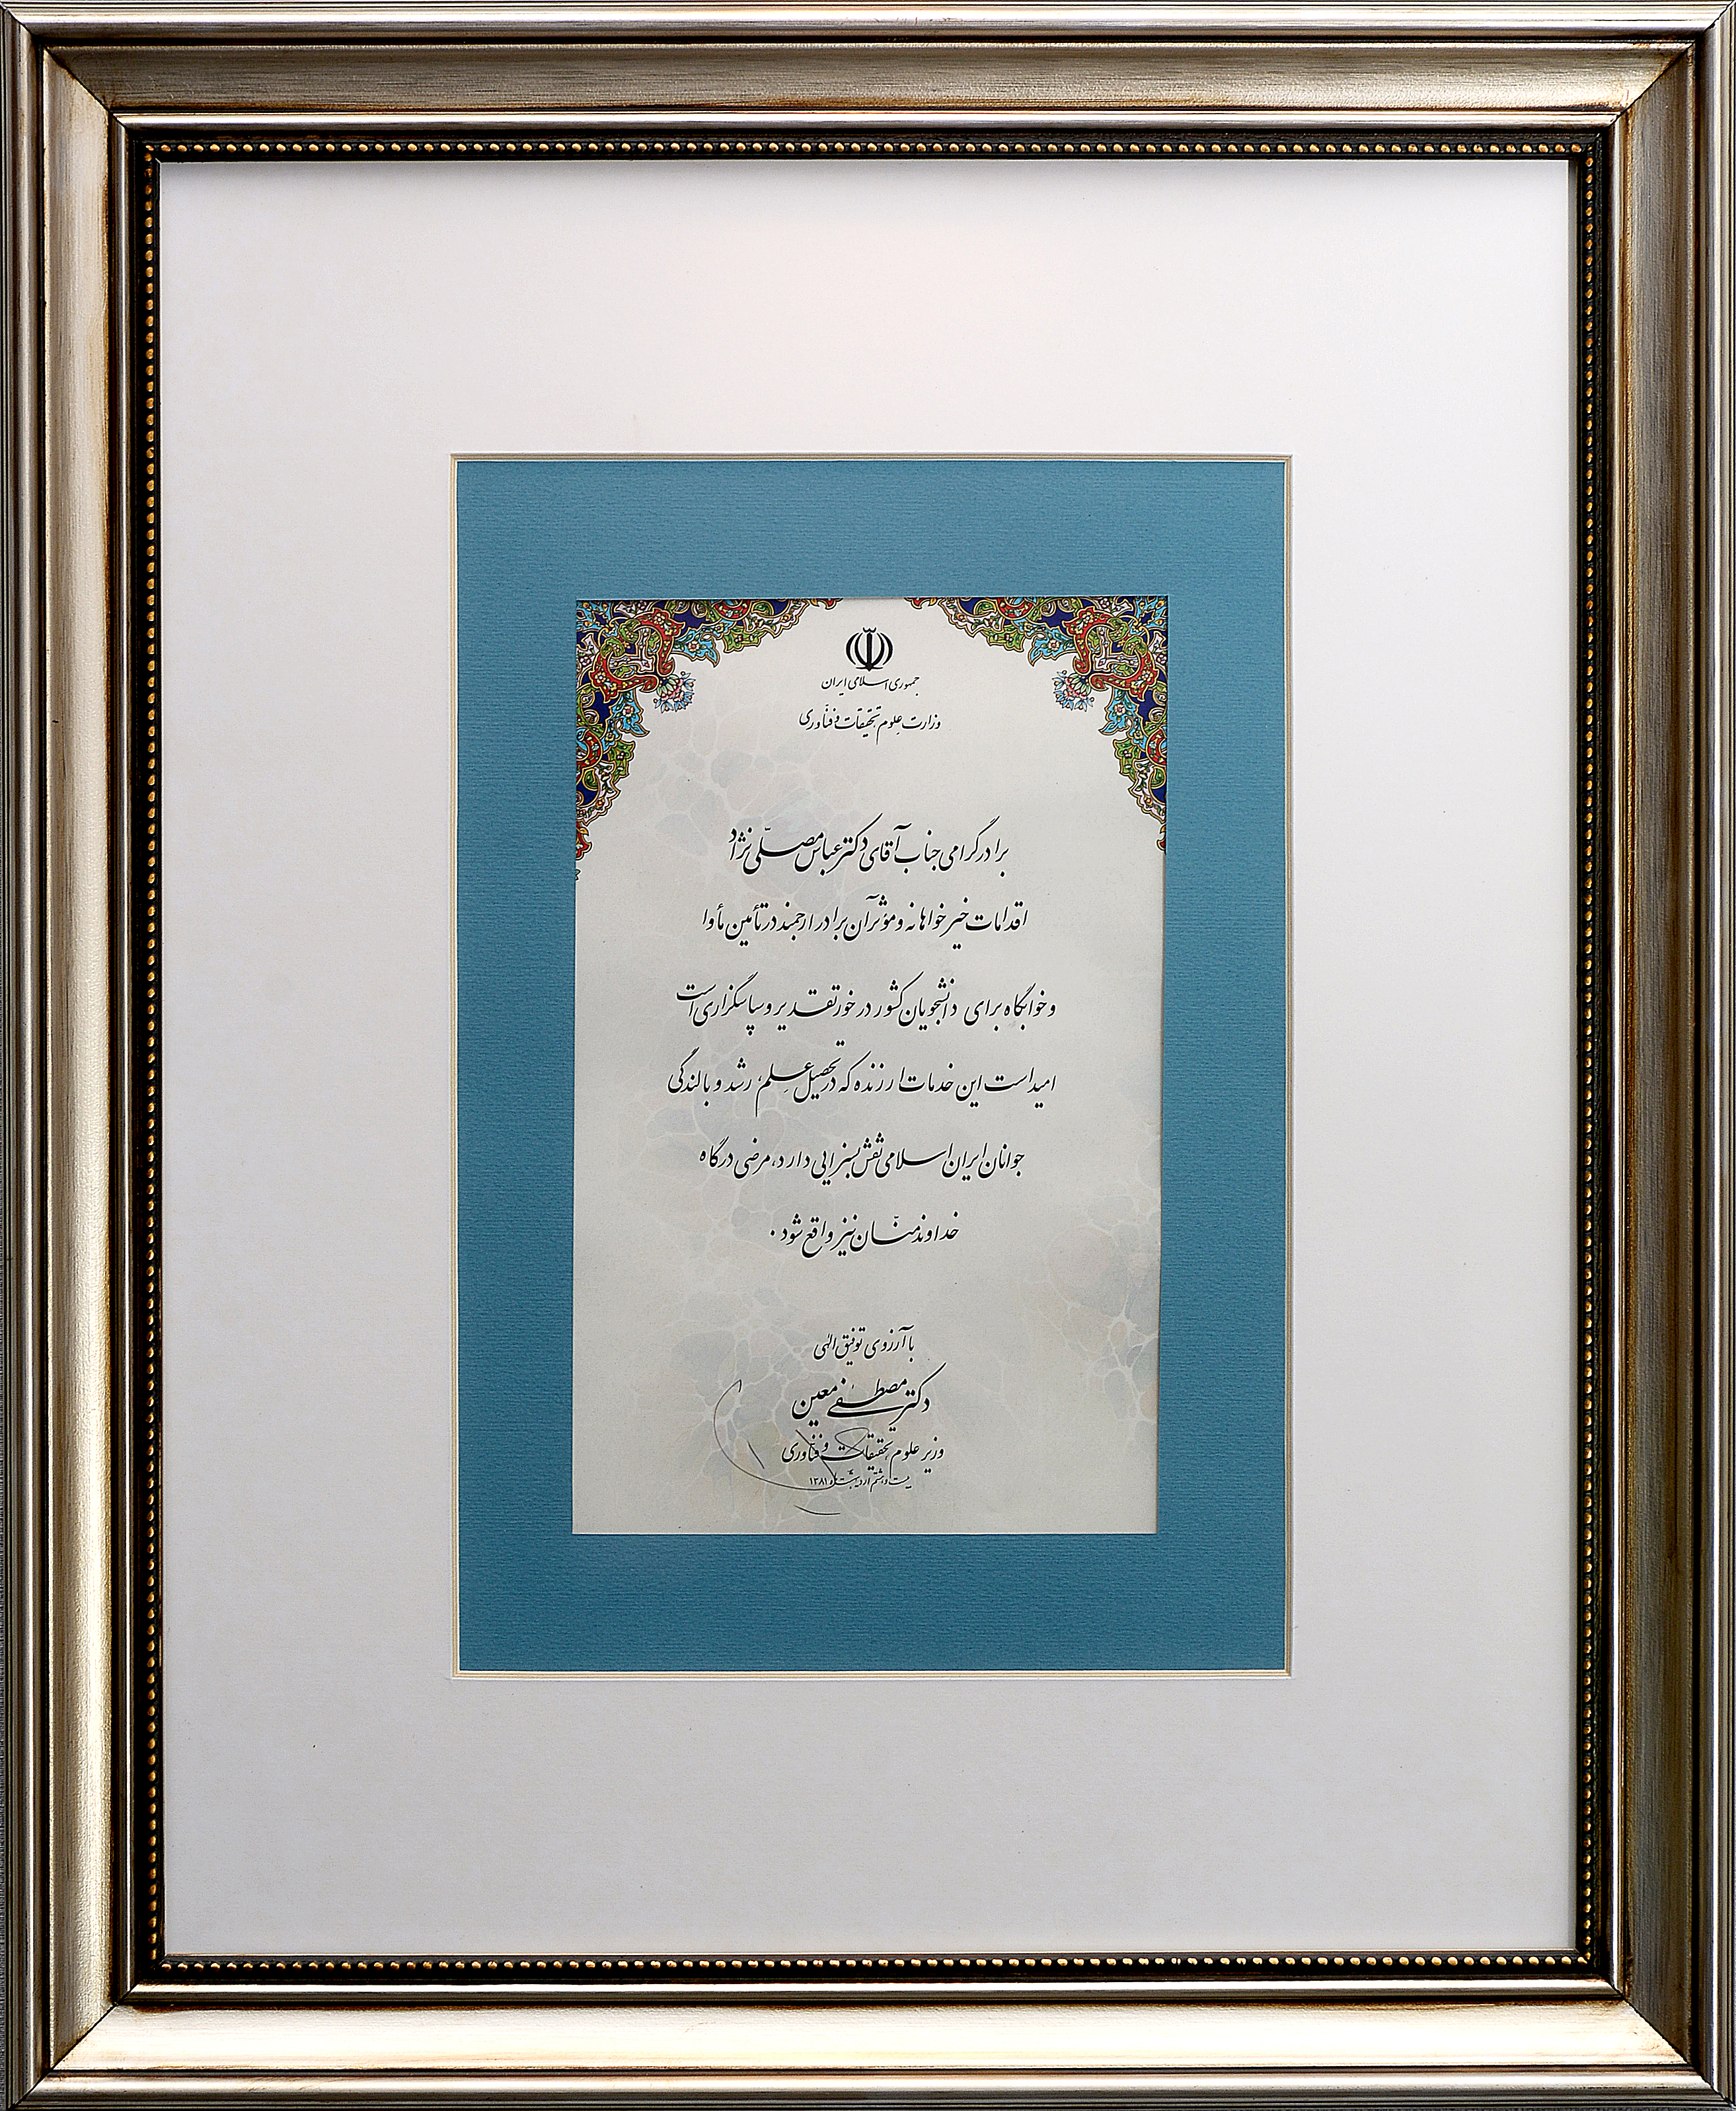 جمهوری اسلامی ایران
وزارت علوم، تحقیقات و فنّاوری
برادر گرامی جناب آقای دکتر عباس مصلّی نژاد
اقدامات خیرخواهانه و مؤثر آن برادر ارجمند در تأمین مأوا
و خوابگاه برای دانشجویان کشور در خور تقدیر و سپاسگزاری است
امید است این خدمات ارزنده که در تحصیل علم، رشد و بالندگی
جوانان ایران اسلامی نقش بسزایی دارد، مرضی درگاه
خداوند منّان نیز واقع شود.
با آرزوی توفیق الهی
دکتر مصطفی معین
وزیر علوم، تحقیقات و فنّاوری
بیست و هشتم اردیبهشت ماه ۱۳۸۱